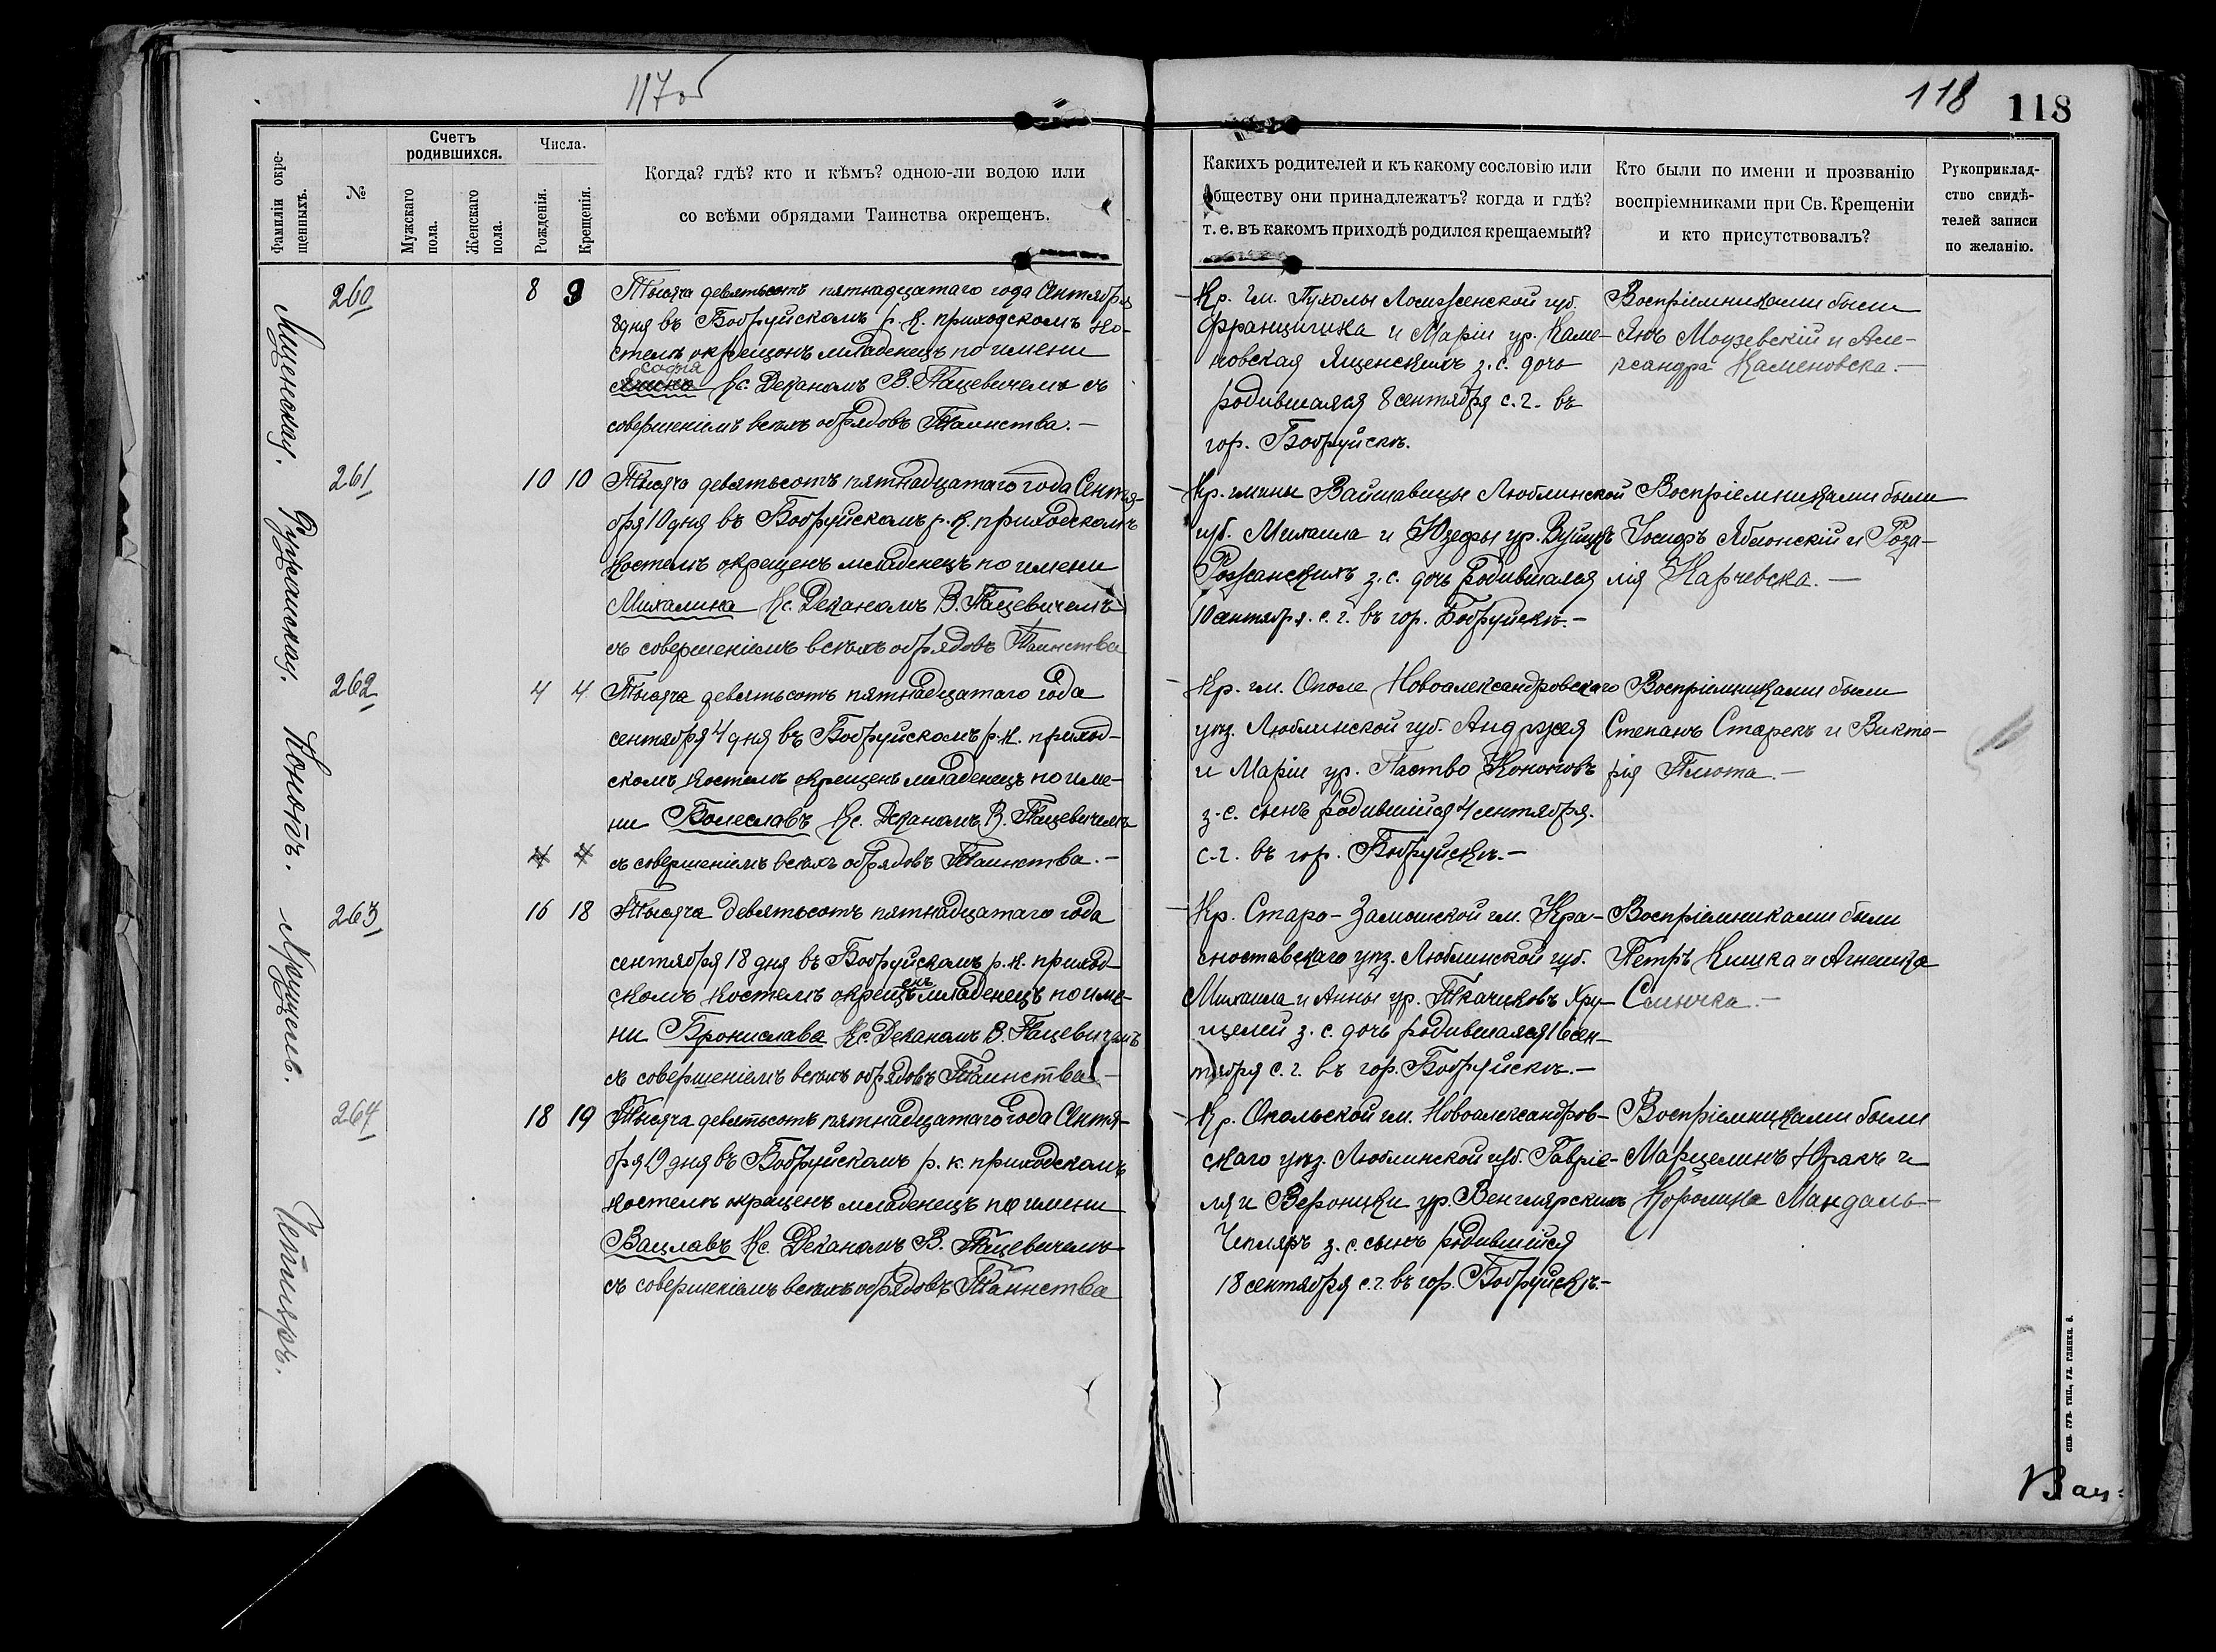 117об
118
118
Фамиліи окре-
щенныхъ.
№
Счетъ
родившихся.
Мужскаго
пола.
Женскаго
пола.
Числа.
Рожденія.
Крещенія.
Когда? гдѣ? кто и кѣмъ? одною-ли водою или
со всѣми обрядами Таинства окрещенъ.
Какихъ родителей и къ какому сословію или
обществу они принадлежатъ? когда и гдѣ?
т. е. въ какомъ приходѣ родился крещаемый?
Кто были по имени и прозванію
воспріемниками при Св. Крещеніи
и кто присутствовалъ?
Рукоприклад-
ство свидѣ-
телей записи
по желанію.
260
8 9
Тысяча девятьсотъ пятнадцатаго года Сентября
8 дня въ Бобруйскомъ р. к. приходскомъ ко-
стелѣ окрещонъ младенецъ по имени
софія
Кс. Деканомъ В. Пацевичемъ съ
совершеніемъ всѣхъ обрядовъ Таинства. —
Кр. гм. Пухолы Ломженской губ.
Францишка и Маріи ур. Каме-
новская Ященскихъ з. с. дочь
родившаяся 8 сентября с. г. въ
гор. Бобруйскѣ.
Воспріемниками были
Янъ Модзевскій и Але-
ксандра Каменовска. —
261
Ружанская.
10 10
Тысяча девятьсотъ пятнадцатаго года Сентя-
бря 10 дня въ Бобруйскомъ р. к. приходскомъ
костелѣ окрещенъ младенецъ по имени
Михалина Кс. Деканомъ В. Пацевичемъ
съ совершеніемъ всѣхъ обрядовъ Таинства
Кр. гмины Вайславицы Люблинской
губ. Михаила и Юзефы ур. Вуйцикъ
Рожанскихъ з. с. дочь родившаяся
10 сентября. с. г. въ гор. Бобруйскѣ. —
Воспріемниками были
Іосифъ Яблонскій и Роза-
лія Карчевска. —
262
Конопъ.
4 4
Тысяча девятьсотъ пятнадцатаго года
сентября 4 дня въ Бобруйскомъ р. к. приход-
скомъ костелѣ окрещенъ младенецъ по име-
ни Болеславъ Кс. Деканомъ В. Пацевичемъ
съ совершеніемъ всѣхъ обрядовъ Таинства. —
Кр. гм. Ополе Новоалександровскаго
уѣз. Люблинской губ. Андржея
и Маріи ур. Паство Коноповъ
з. с. сынъ родившійся 4 сентября.
с. г. въ гор. Бобруйскѣ. —
Воспріемниками были
Степанъ Старекъ и Викто-
рія Плюта. —
263
Хрущель.
16 18
Тысяча девятьсотъ пятнадцатаго года
сентября 18 дня въ Бобруйскомъ р. к. приход-
скомъ костелѣ окрещенъ младенецъ по име-
ни Бронислава Кс. Деканомъ В. Пацевичемъ
съ совершеніемъ всѣхъ обрядовъ Таинства. —
Кр. Старо-Замошской гм. Кра-
сноставскаго уѣз. Люблинской губ.
Михаила и Анны ур. Ткачиковъ Хру-
щелей з. с. дочь родившаяся 16 сен-
тября с. г. въ гор. Бобруйскѣ. —
Воспріемниками были
Петръ Кишка и Агнешка
264
18 19
Тысяча девятьсотъ пятнадцатаго года Сентя-
бря 19 дня въ Бобруйскомъ р. к. приходскомъ
костелѣ окрещенъ младенецъ по имени
Вацлавъ Кс. Деканомъ В. Пацевичемъ
съ совершеніемъ всѣхъ обрядовъ Таинства
Кр. Опольской гм. Новоалександров-
скаго уѣз. Люблинской губ. Гавріе-
ля и Вероники ур. Венглярскихъ
Чепляръ з. с. сынъ родившійся
18 сентября с. г. въ гор. Бобруйскѣ. —
Воспріемниками были
Марцелинъ и
Каролина Мандаль —
СПБ. ГУБ. ТИП., УЛ. ГЛИНКИ, 8.